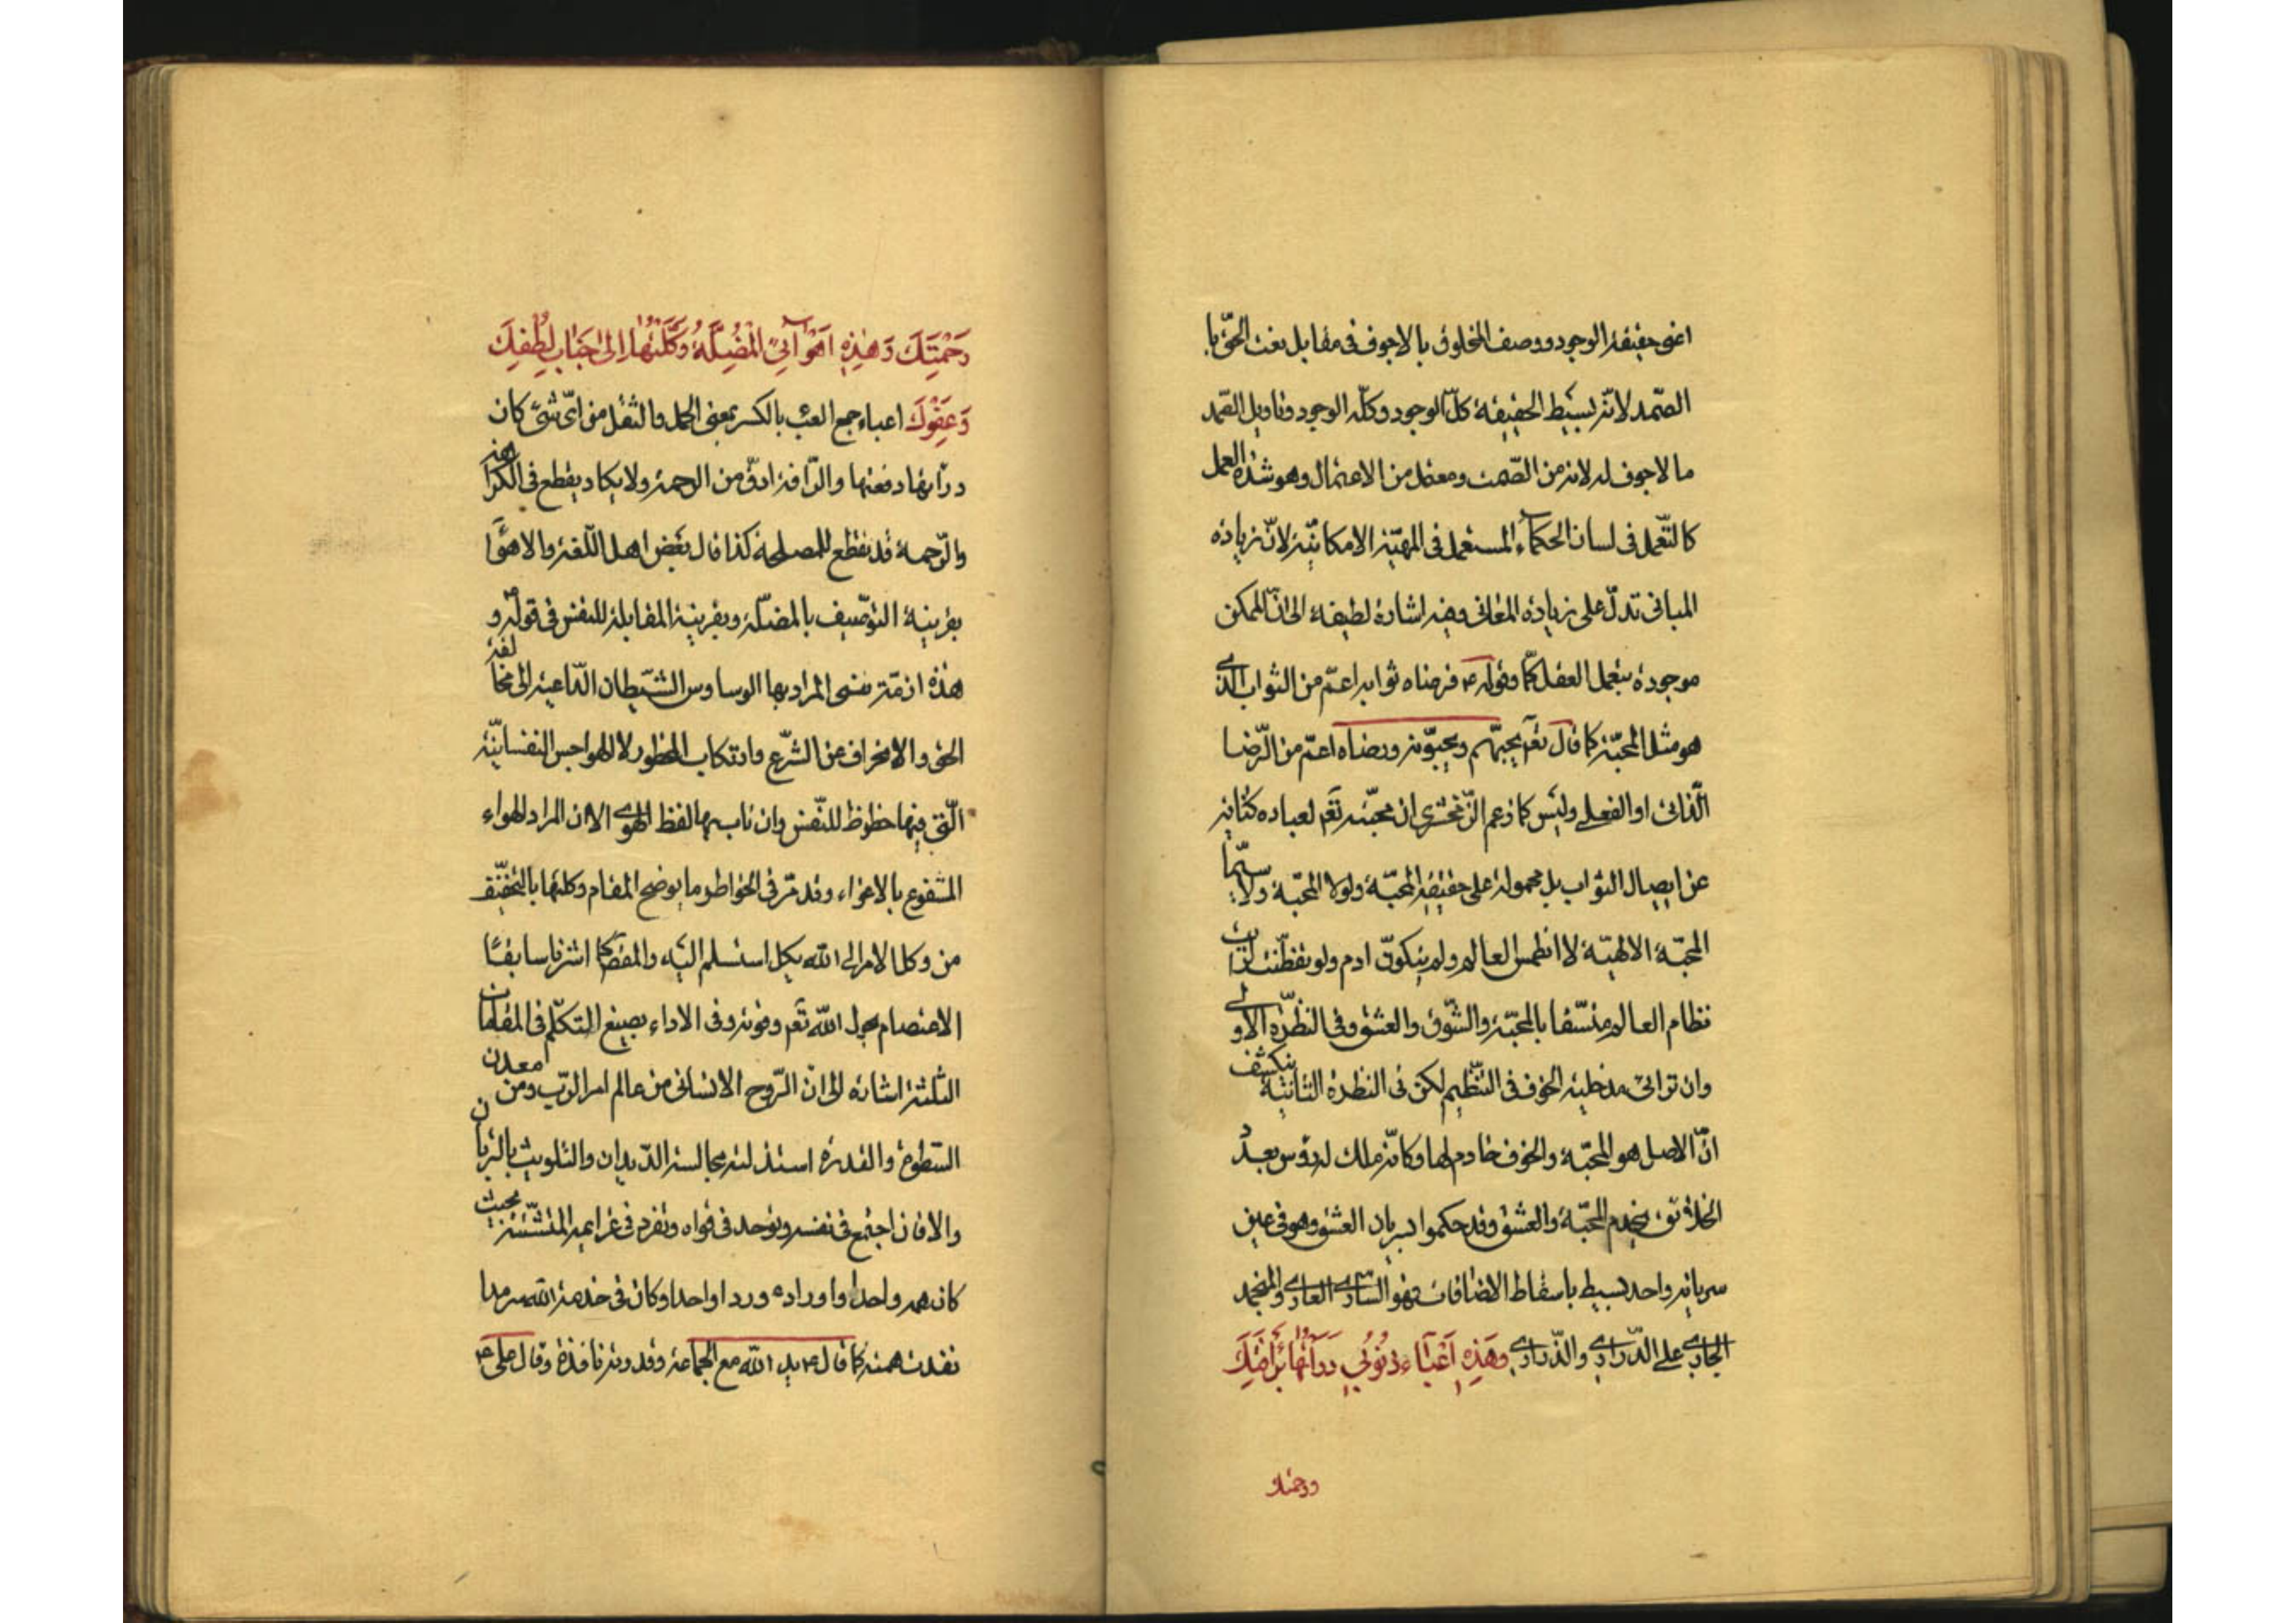 اعنى حقيقة الوجود ووصف المخلوق بالاجوف فى مقابل نعت الحق با
الصّمد لانّه بسيط الحقيقة كلّ الوجود وكلّه الوجود وتاويل الصّمد
ما لا جوف له لانه من الصّمت ومعتمل من الاعتمال وهو شدّة العمل
كالتّعمل فى لسان الحكماء المستعمل فى المهيّة الامكانيّة لانّ زيادة
المبانى تدلّ على زيادة المعانى وفيه اشارة لطيفة الى انّ الممكن
موجودة بتعمل العقل كما وقوله ع فرضناه ثوابه اعمّ من الثواب الذى
هو مثل المحبّة كما قال تعم يحبّهم ويحبّونه ورضاه اعمّ من الرّضا
الذّاتى او الفعلى وليس كما زعم الزّمخشرى ان محبّته تعم لعباده كناية
عن ايصال الثواب بل محمولة على حقيقة المحبّة ولولا المحبّة ولا سيّما
المحبّة الالهيّة لا انطمس العالم ولم يتكوّن ادم ولو تفطّنت لرايت
نظام العالم منسّقا بالمحبّة والشّوق والعشق وفى النظرة الاولى
وان تراءى مدخلية الخوف فى التنظيم لكن فى النظرة الثانية ينكشف
انّ الاصل هو المحبّة والخوف خادم لها وكانّه ملك له رؤس بعدد
الخلائق يخدم المحبّة والعشق وقد حكموا بسريان العشق وهو فى عين
سريانه واحد بسيط باسقاط الاضافات فهو السّارى العارى والمنجمد
الجارى على الدّرارى والذّرارى وَهذِهِ اَعْبَاءُ ذُنُوبِى دَرَأْتُهَا بِرَأْفَتِكَ
ورحمتك
رَحْمَتِكَ وَهذِهِ اَهْوَائِىَ الْمُضِلَّةُ وَكَّلْتُهَا اِلى جَنَابِ لُطْفِكَ
وَعَفْوِكَ اعباء جمع العبء بالكسر بمعنى الحمل والثقل من اىّ شىء كان
درأتها دفعتها والرّافة ادقّ من الرحمة ولا يكاد يقطع فى الكراهة
والرّحمة قد تقطع للمصلحة كذا قال بعض اهل اللّغة والاهوا
بقرينة التوصيف بالمضلّة وبقرينة المقابلة للنفس فى قوله ع و
هذه ازمّة نفسى المراد بها الوساوس الشّيطان الدّاعية الى مخالفة
الحق والانحراف عن الشّرع وارتكاب المحظور لا الهواجس النفسانيّة
الّتى فيها حظوظ للنّفس وان ناب بها لفظ الهوى الا ان المراد الهواء
المشفوع بالاغواء وقد مرّ فى الخواطر ما يوضح المقام وكلتها بالتخفيف
من وكل الامر الى الله يكل استسلم اليه والمقصد كما اشرنا سابقًا
الاعتصام بحول الله تعم وقوته وفى الاداء بصيغ التكلّم فى المقامات
الثلثة اشارة الى انّ الرّوح الانسانى من عالم امر الربّ ومن معدن
السّطوع والقدرة استذلته مجالسة الدّيدان والتلويث بالدّيان
والا فان اجتمع فى نفسه وتوحد فى قواه وتفرد فى عزايمه المتشتّتة بحيث
كان همه واحدا واوراده وردا واحدا وكان فى خدمة الله سرمدا
نفدت همته كما قال ع يد الله مع الجماعة وقدوته نافذة وقال على ع